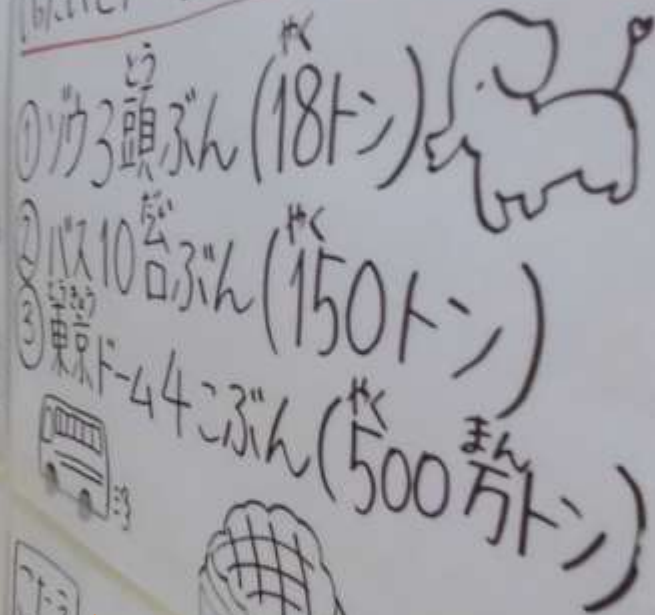 ①ゾウ3頭ぶん(やく18トン)
②バス10台ぶん(やく150トン)
③東京ドーム4こぶん(やく500万トン)
こたえ